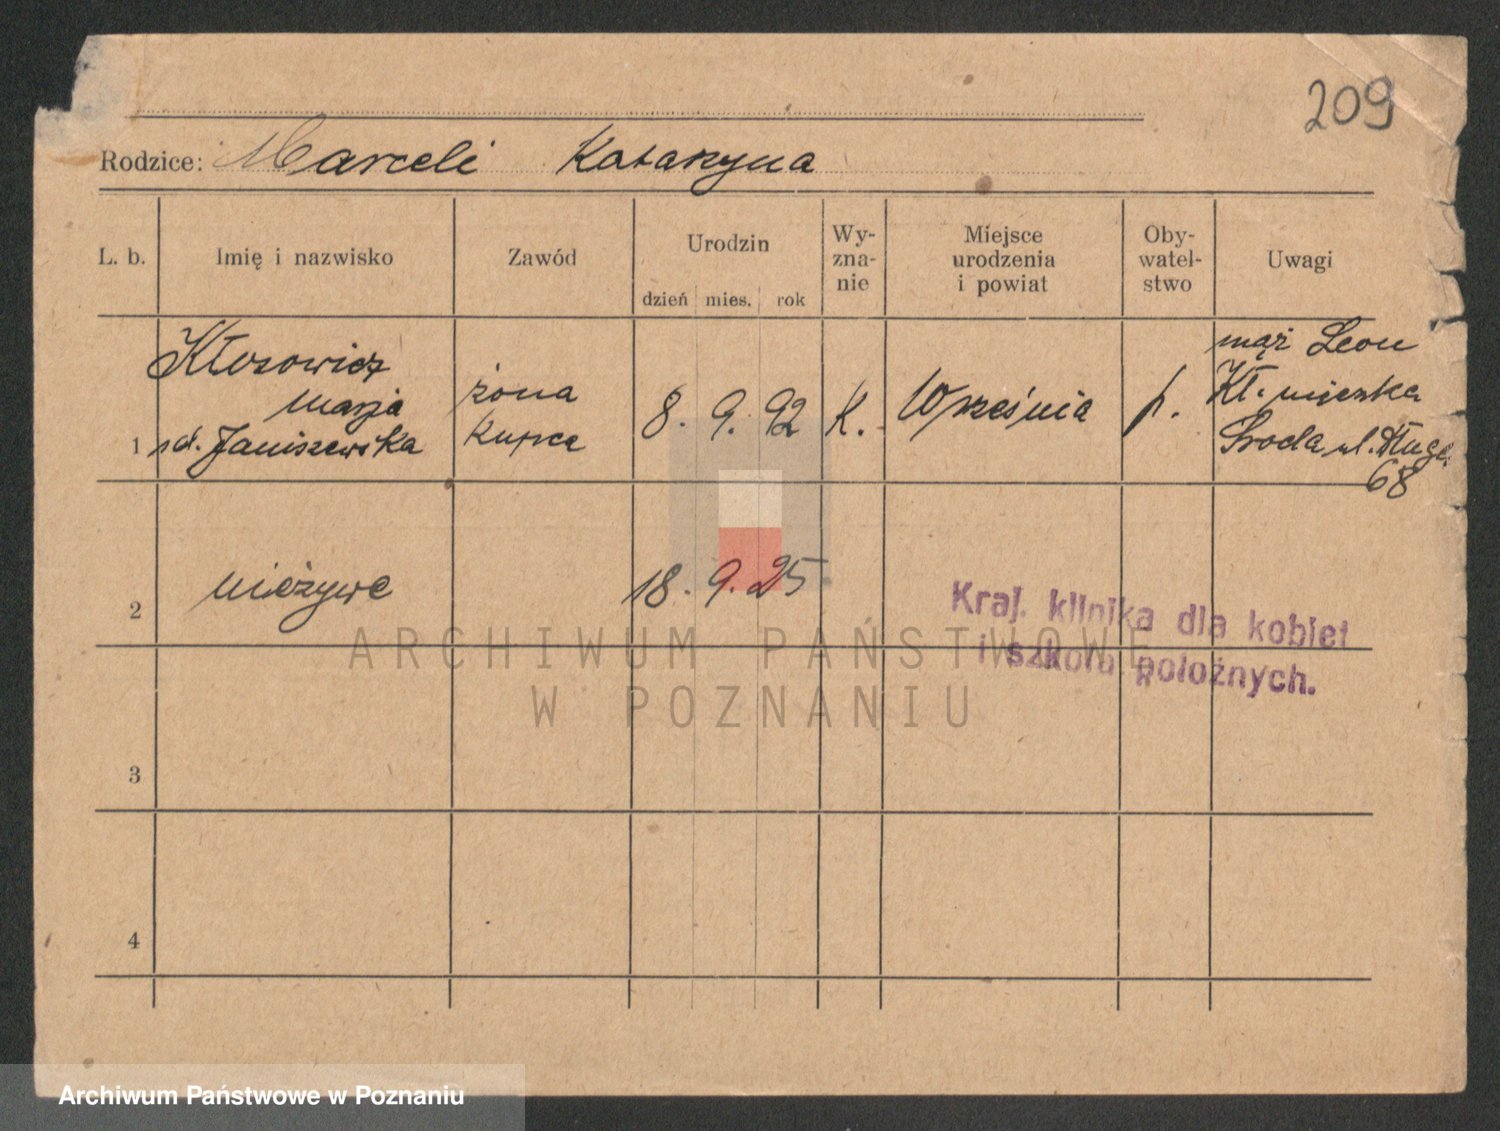 209
Rodzice: Marceli Katarzyna
L. b. Imię i nazwisko Zawód Urodzin dzień mies. rok Wy-zna-nie Miejsce urodzenia i powiat Oby-watel-stwo Uwagi
Kłosowicz
Marja
1 zd. Janiszewska
żona
kupca
8. 9. 92
K.
Września
p.
mąż Leon
Kł. mieszka
Środa ul. Długa
68
2 nieżywe 18. 9. 25
Kraj. klinika dla kobiet
i szkoła położnych.
3
4
ARCHIWUM PAŃSTWOWE
W POZNANIU
Archiwum Państwowe w Poznaniu